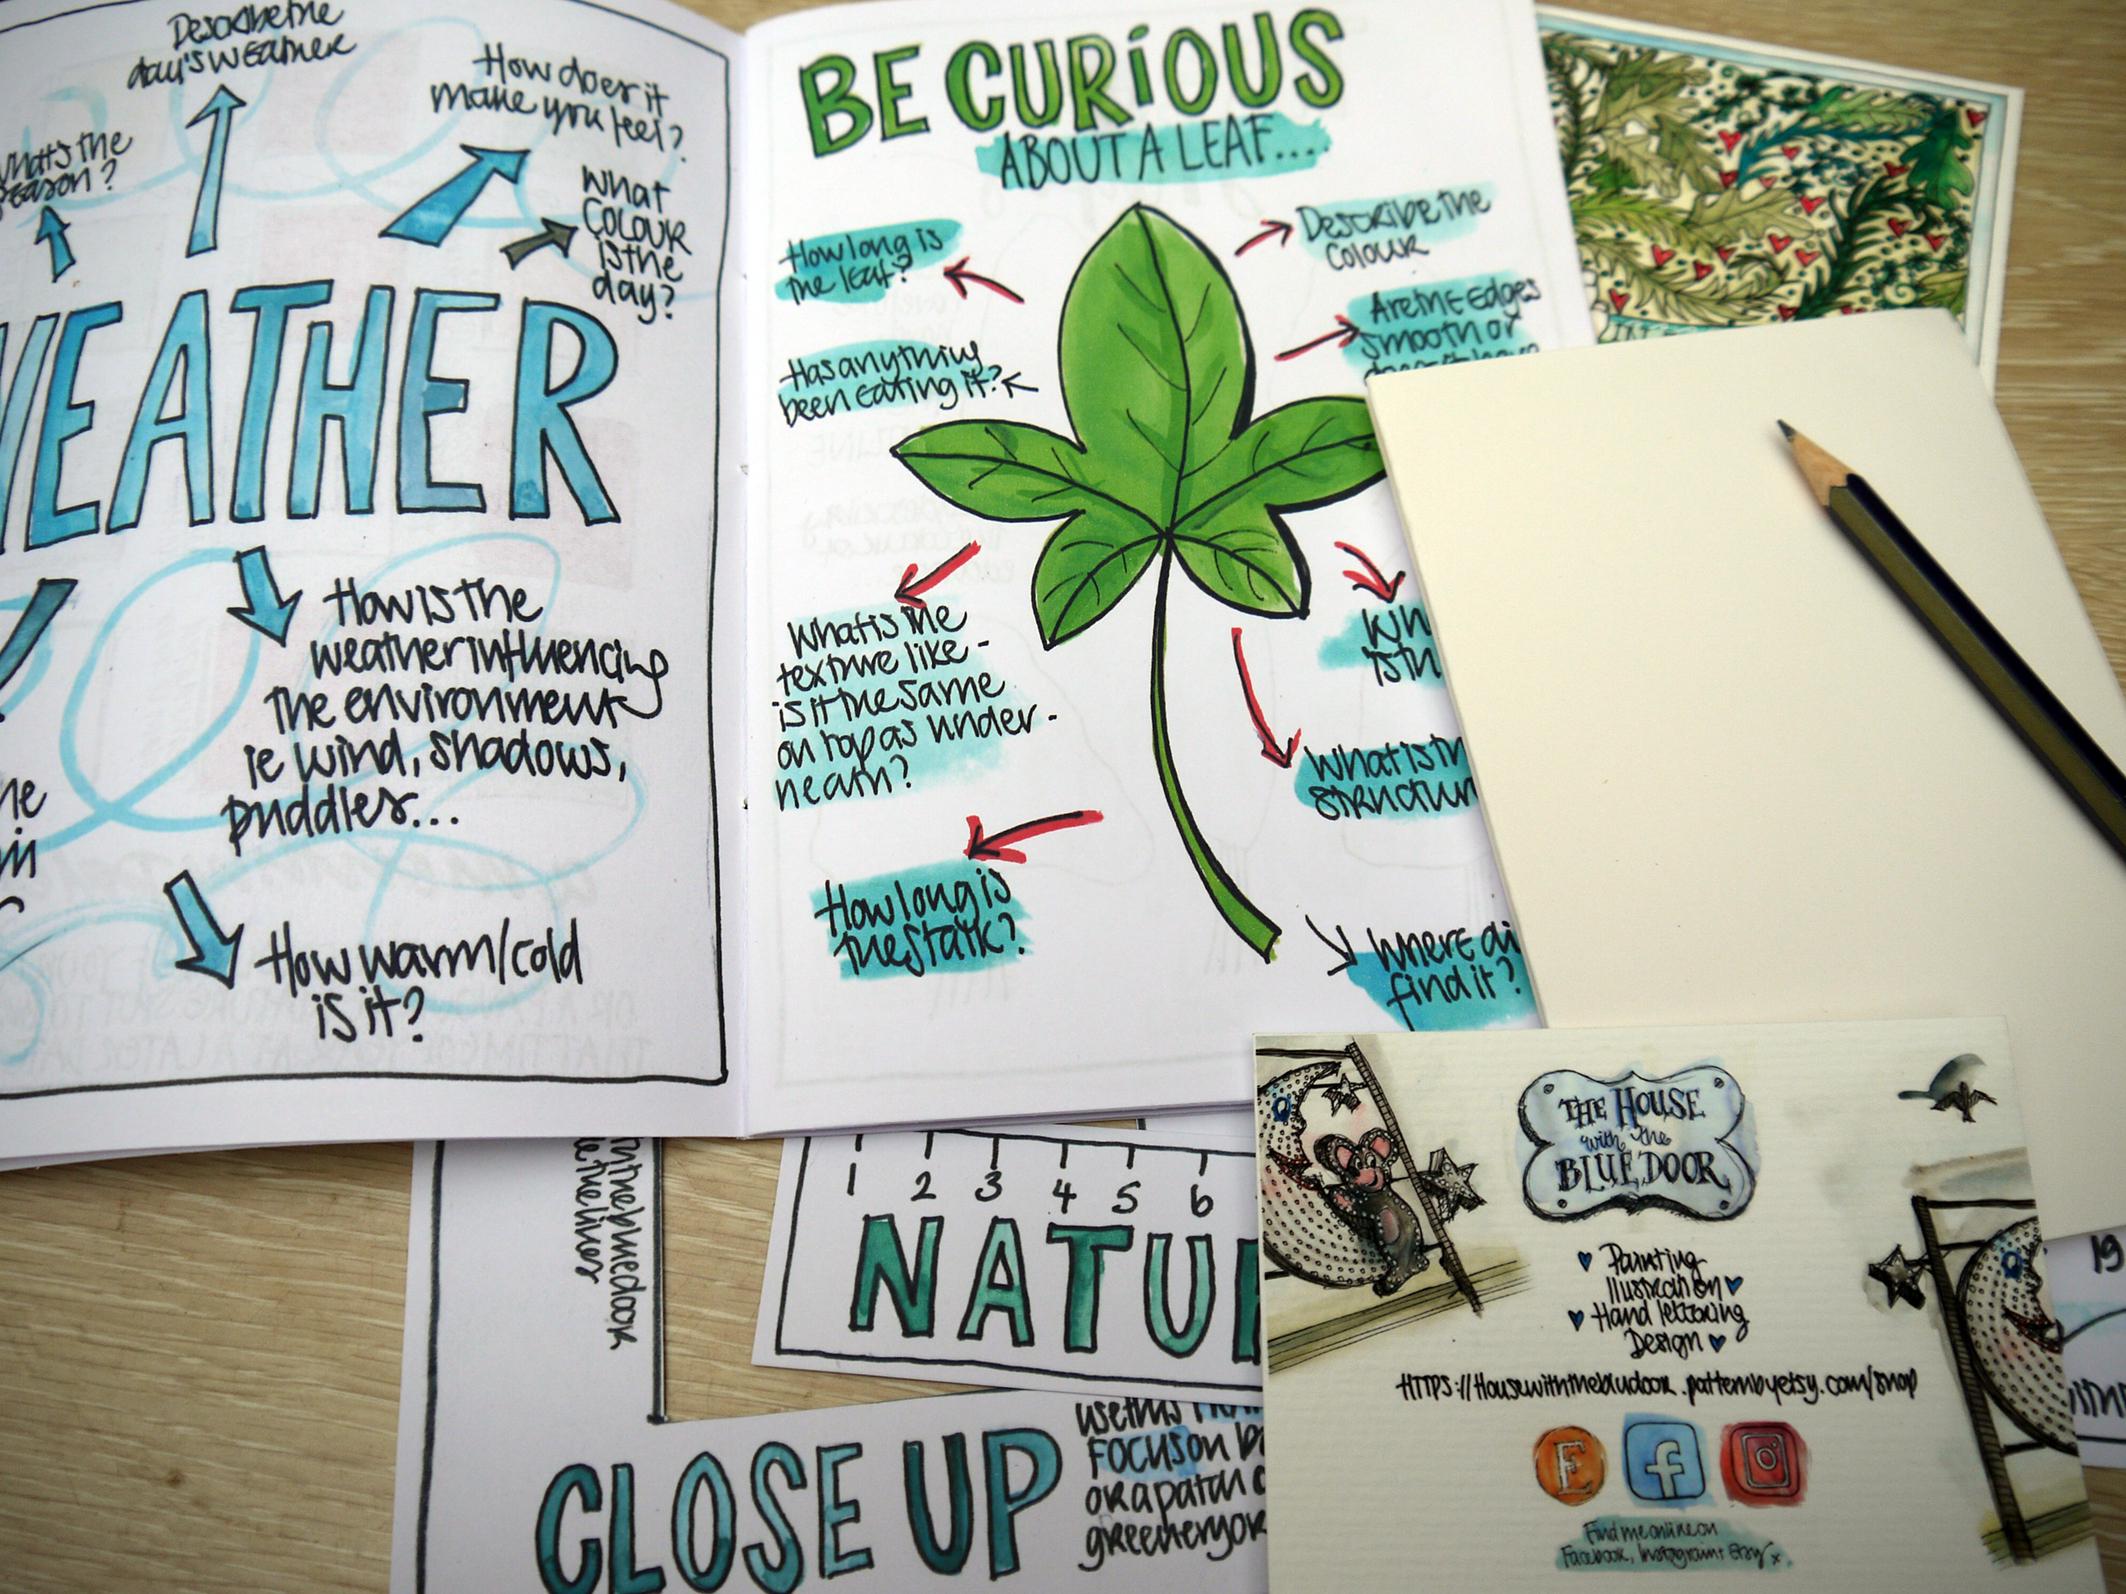 Describe the
day's weather
How does it
make you feel?
What's the
season?
What
colour
is the
day?
WEATHER
How is the
weather influencing
the environment
ie wind, shadows,
puddles...
How warm/cold
is it?
BE CURIOUS
ABOUT A LEAF....
How long is
the leaf?
Describe the
colour
Has anything
been eating it?
Are the edges
smooth or
What is the
texture like -
is it the same
on top as under-
neath?
What is th
structur
How long is
the stalk?
Where di
find it?
1 2 3 4 5 6
NATU
CLOSE UP
use this
FOCUS on
or a patch
greenery or
THE HOUSE
with the
BLUE DOOR
Painting
Illustration
Hand lettering
Design
HTTPS://Housewiththebludoor.patternbyetsy.com/shop
Find me online on
Facebook, Instagram + Etsy x
19